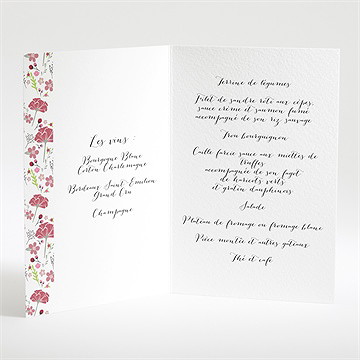 Les vins :
Bourgogne Blanc
Corton Charlemagne
Bordeaux Saint-Emilion
Grand Cru
Champagne
Terrine de légumes
Filet de sandre rôti aux cèpes,
sauce crème et saumon fumé
accompagné de son riz sauvage
Trou bourguignon
Caille farcie sauce aux miettes de
truffes
accompagnée de son fagot
de haricots verts
et gratin dauphinois
Salade
Plateau de fromage ou fromage blanc
Pièce montée et autres gâteaux
Thé et café